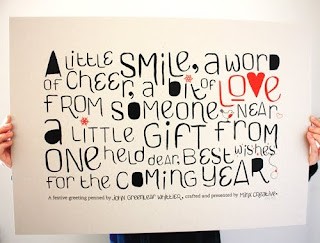 A LittLe SMiLe, a word
of cheer, a bit of Love
from someone near
a LittLe Gift from
one heLd dear, Best wishes
for the coming year
A festive greeting penned by John Greenleaf Whittier, crafted and presented by Minx Creative.